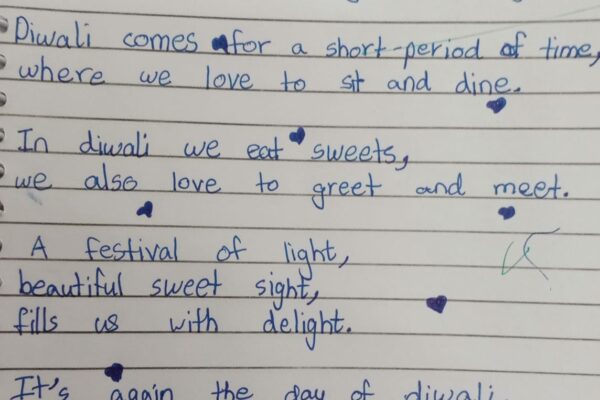 Diwali comes for a short-period of time,
where we love to sit and dine.
In diwali we eat sweets,
we also love to greet and meet.
A festival of light,
beautiful sweet sight,
fills us with delight.
It's again the day of diwali,